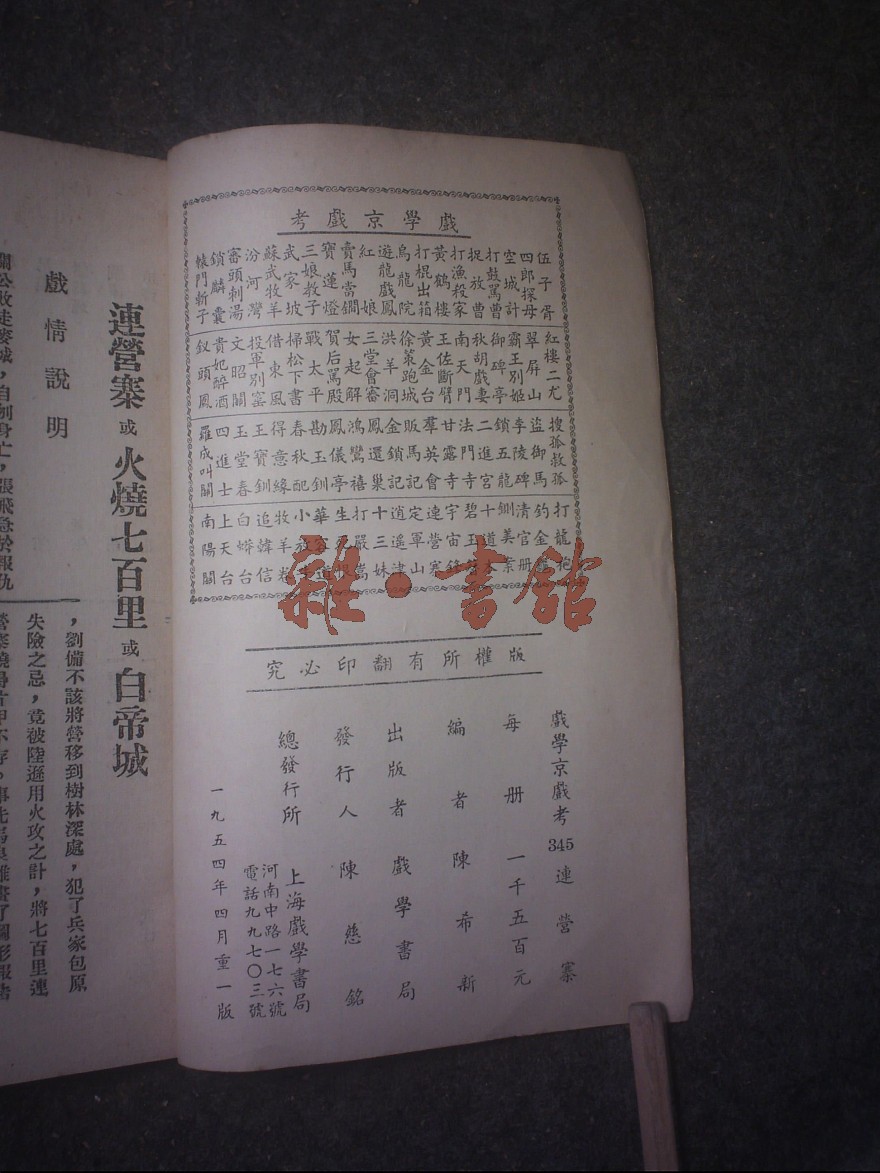 戲學京戲考
伍子胥
四郎探母
空城計
打鼓罵曹
捉放曹
打漁殺家
黃鶴樓
打棍出箱
烏龍院
遊龍戲鳳
紅娘
賣馬當鐧
寶蓮燈
三娘教子
武家坡
蘇武牧羊
汾河灣
審頭刺湯
鎖麟囊
轅門斬子
紅樓二尤
翠屏山
霸王別姬
御碑亭
秋胡戲妻
南天門
王佐斷臂
黃金台
徐策跑城
洪羊洞
三堂會審
女起解
賀后罵殿
戰太平
掃松下書
借東風
投軍別窰
文昭關
貴妃醉酒
釵頭鳳
搜孤救孤
盜御馬
李陵碑
鎖五龍
二進宮
法門寺
甘露寺
羣英會
販馬記
金鎖記
鳳還巢
鴻鸞禧
鳳儀亭
勘玉釧
春秋配
得意緣
王寶釧
玉堂春
四進士
羅成叫關
打龍袍
釣金龜
清官冊
鍘美案
十道本
碧玉簪
宇宙鋒
連營寨
定軍山
逍遙津
十三妹
打嚴嵩
生死恨
華容道
小放牛
牧羊卷
追韓信
白蟒台
上天台
南陽關
雜·書館
版權所有翻印必究
戲學京戲考345連營寨
每冊一千五百元
編者陳希新
出版者戲學書局
發行人陳慈銘
總發行所上海戲學書局
河南中路一七六號
電話九九七〇三號
一九五四年四月重一版
連營寨或火燒七百里或白帝城
戲情說明
關公敗走麥城，自刎身亡，張飛急於報仇
，劉備不該將營移到樹林深處，犯了兵家包原
失險之忌，竟被陸遜用火攻之計，將七百里連